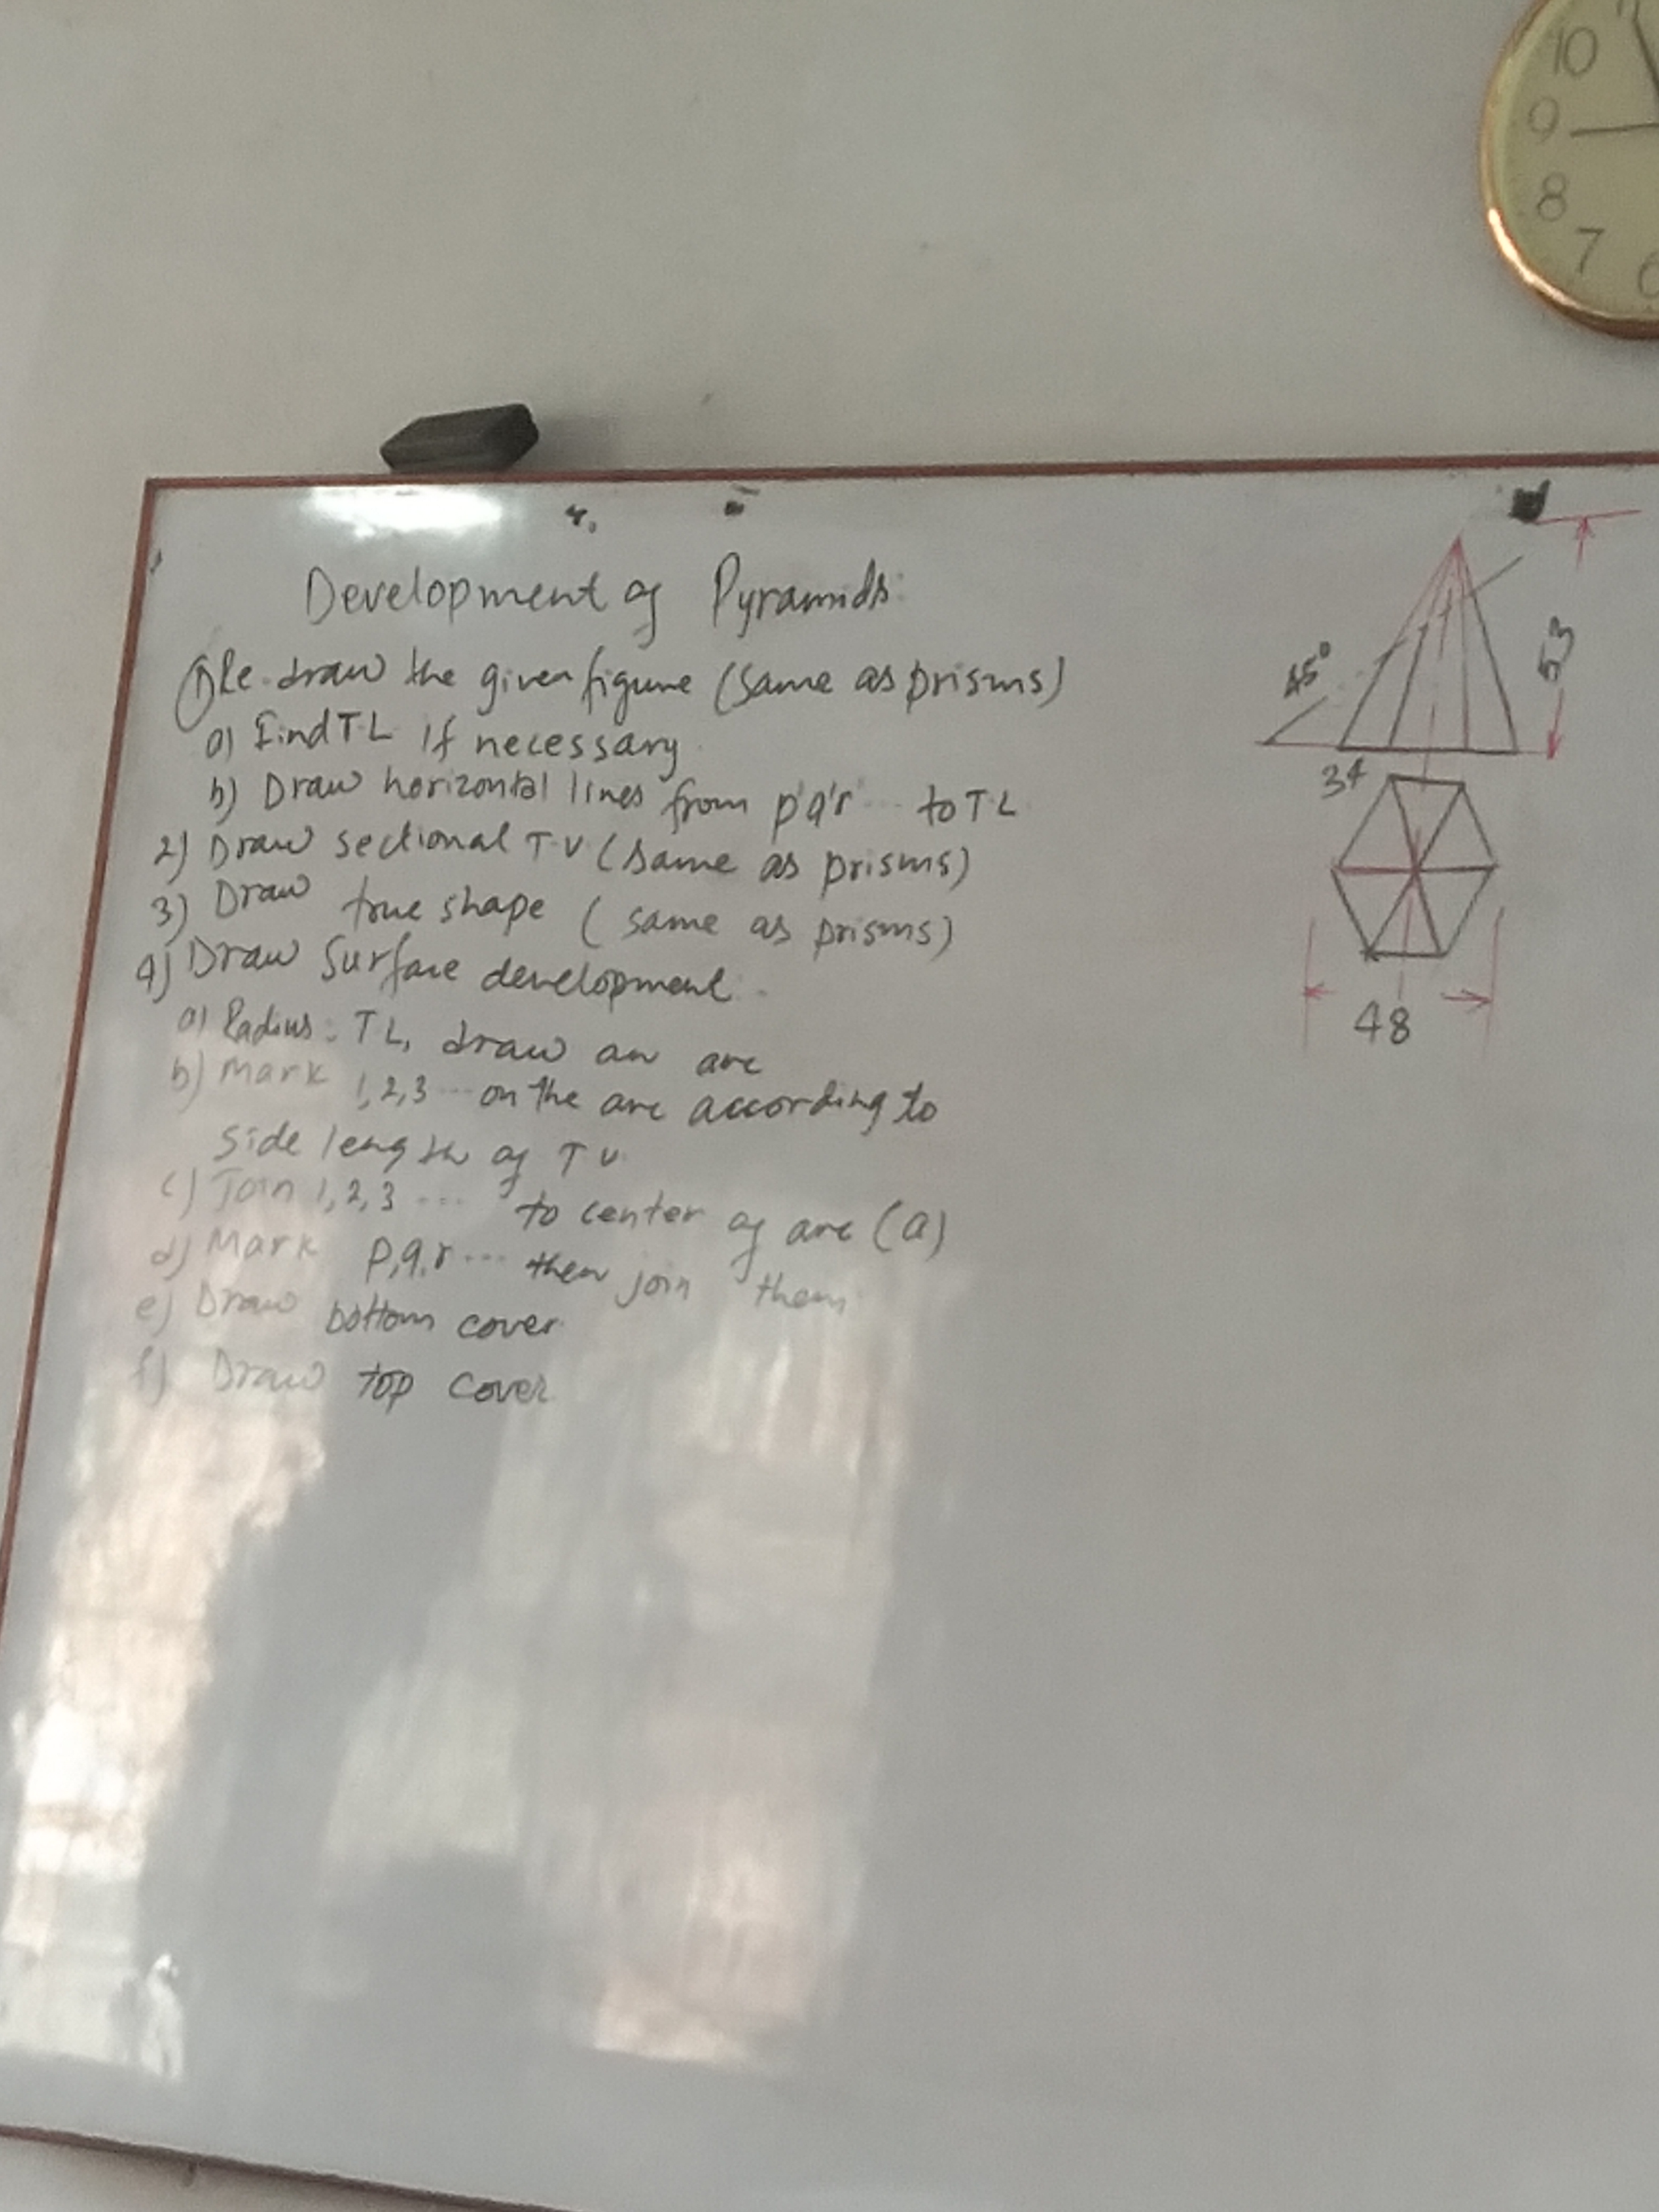 10
9
8
7
6
Development of Pyramids:
① Re-draw the given figure (same as prisms)
a) Find T.L if necessary.
b) Draw horizontal lines from p'q'r' ... to T.L
2) Draw sectional T.V (same as prisms)
3) Draw true shape ( same as prisms)
4) Draw Surface development.
a) Radius = TL, draw an arc
b) Mark 1,2,3 ... on the arc according to
side length of T.V.
c) Join 1,2,3 .... to center of arc (a)
d) Mark p,q,r ... then join them.
e) Draw bottom cover.
f) Draw top cover.
45°
53
34
48